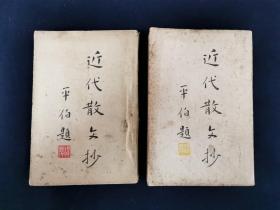 近代散文抄
平伯題
近代散文抄
平伯題